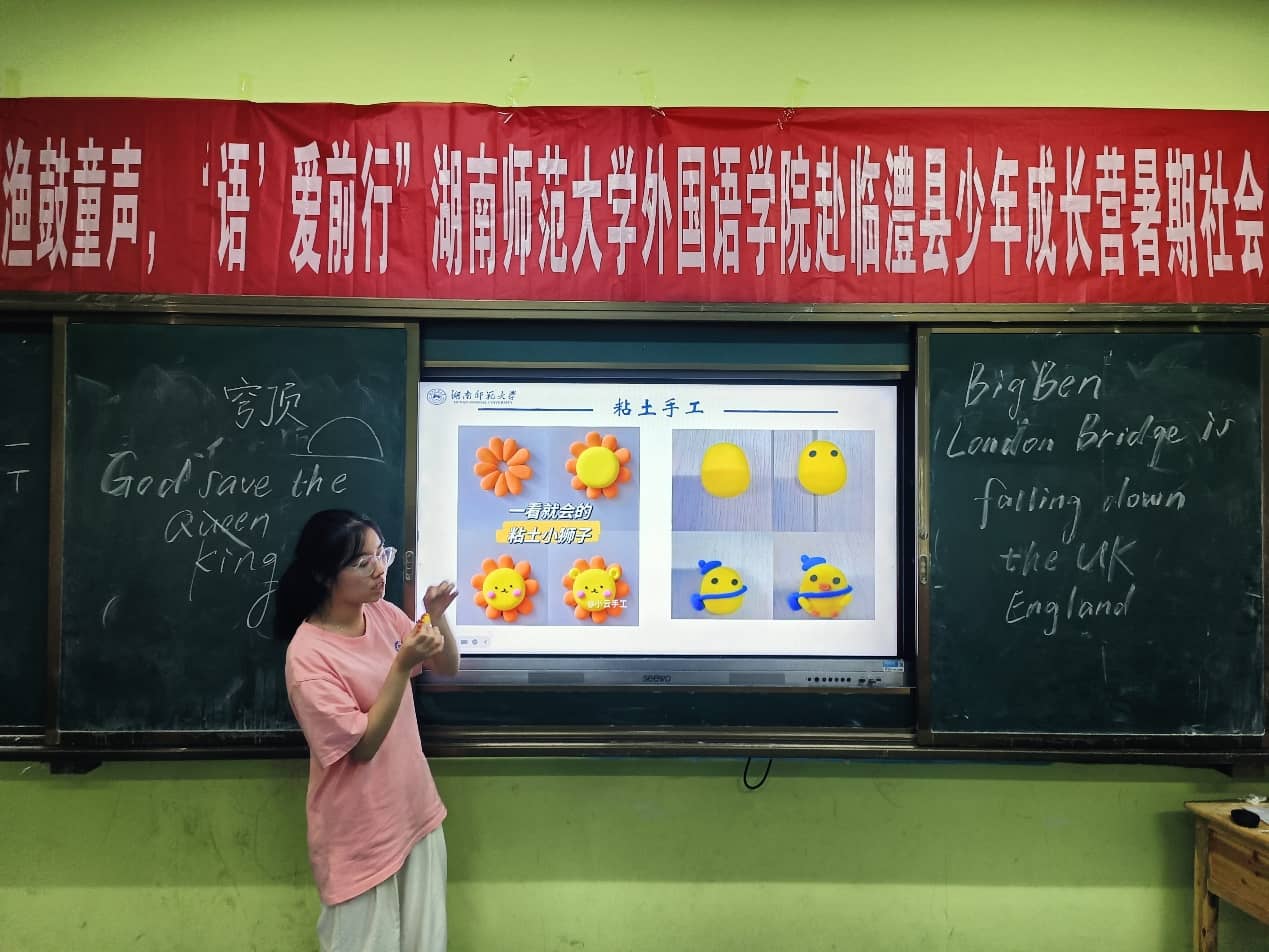 渔鼓童声，‘语’爱前行”湖南师范大学外国语学院赴临澧县少年成长营暑期社会
穹顶
God save the
Queen
king
湖南师范大学
粘土手工
一看就会的
粘土小狮子
@小云手工
seewo
Big Ben
London Bridge is
falling down
the UK
England